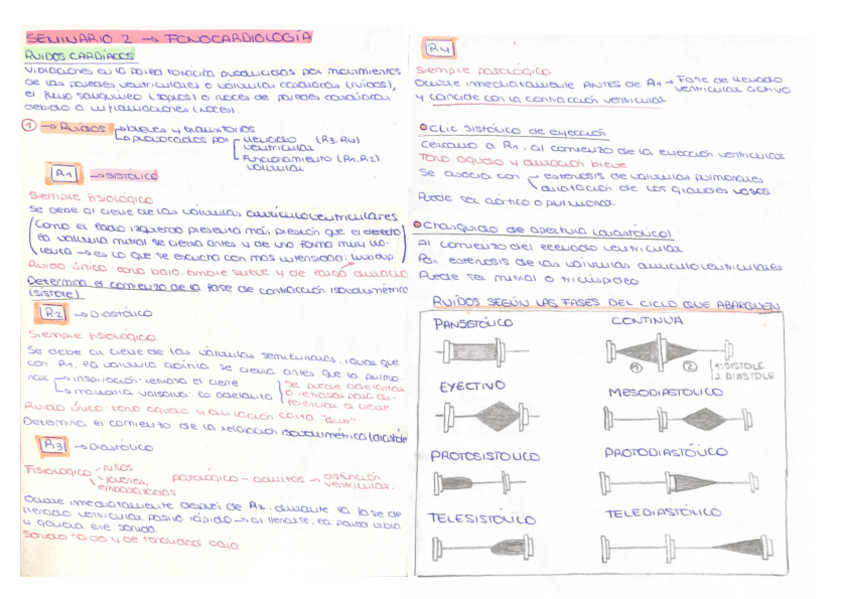 SEMINARIO 2 → FONOCARDIOLOGÍA
RUIDOS CARDÍACOS
Vibraciones en la pared torácica producidas por movimientos
de las paredes ventriculares o válvulas cardíacas (ruidos),
el flujo sanguíneo (soplos) o roces de paredes cardíacas
debido a inflamaciones (roces).
① → Ruidos → breves y transitorios
→ provocados por llenado ventricular (R3, R4)
Funcionamiento valvular (R1, R2)
R1 → SISTÓLICO
Siempre fisiológico
Se debe al cierre de las válvulas auriculoventriculares
(Como el lado izquierdo presenta más presión que el derecho
la válvula mitral se cierra antes y de una forma muy vio-
lenta → es lo que se escucha con más intensidad:
Ruido único: tono bajo, timbre suave y de larga duración
Determina el comienzo de la fase de contracción isovolumétrica
(sístole)
R2 → DIASTÓLICO
Siempre fisiológico
Se debe al cierre de las válvulas semilunares, igual que
con R1, la válvula aórtica se cierra antes que la pulmo-
nar → inspiración: retrasa el cierre
→ maniobra valsalva: lo adelanta
se puede adelantar
o retrasar para di-
ferenciar el cierre.
Ruido único: tono agudo y duración corta "dup"
Determina el comienzo de la relajación isovolumétrica (diástole)
R3 → DIASTÓLICO
Fisiológico - niños
jóvenes,
embarazadas
patológico - adultos → disfunción
ventricular.
Ocurre inmediatamente después de R2, durante la fase de
llenado ventricular pasivo rápido → al llenarse, la pared vibra
y genera ese sonido.
Sonido sordo y de tonalidad baja
R4
Siempre patológico
Ocurre inmediatamente ANTES de R1 → Fase de llenado
ventricular activo
y coincide con la contracción ventricular
Clic sistólico de eyección
Cercano a R1, al comienzo de la eyección ventricular
Tono agudo y duración breve
Se asocia con → estenosis de válvulas pulmonares
dilatación de los grandes vasos
Puede ser aórtico o pulmonar.
Chasquido de apertura (diastólico)
Al comienzo del llenado ventricular
Por estenosis de las válvulas auriculoventriculares
Puede ser mitral o tricúspideo
RUIDOS SEGÚN LAS FASES DEL CICLO QUE ABARQUEN
PANSISTÓLICO
CONTINUA
① ②
1: SISTOLE
2 DIASTOLE
EYECTIVO
MESODIASTÓLICO
PROTOSISTÓLICO
PROTODIASTÓLICO
TELESISTÓLICO
TELEDIASTÓLICO